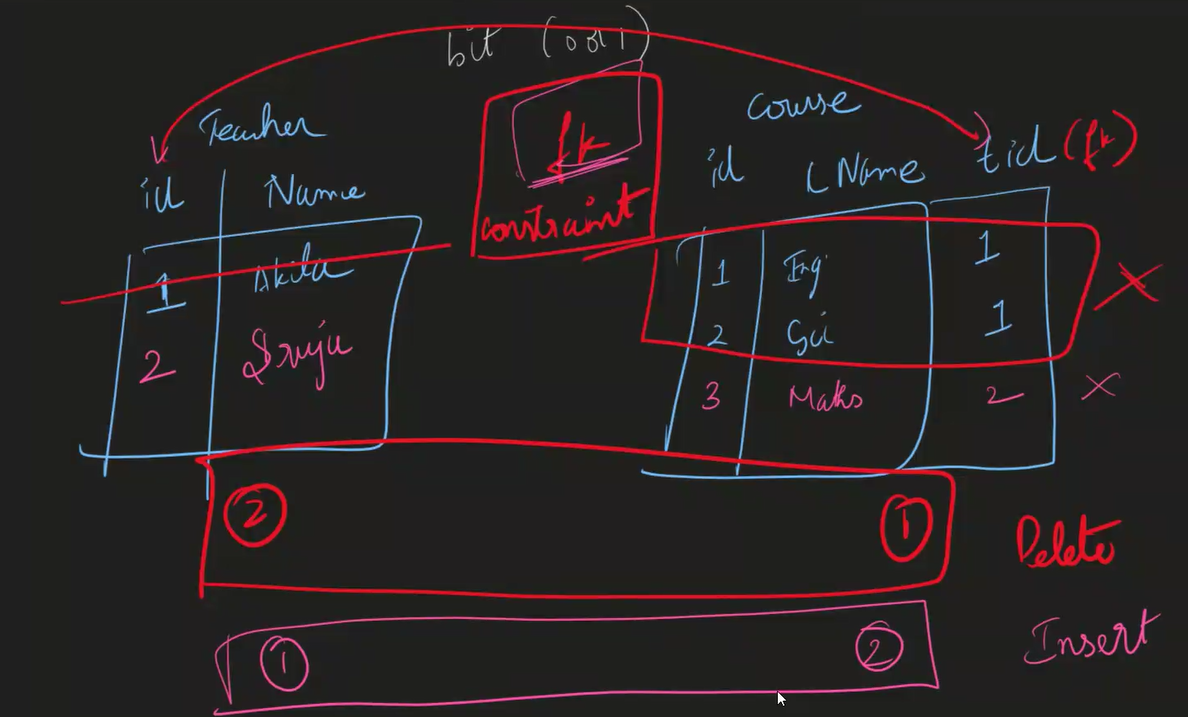 bit (0 or 1)
Teacher
id Name
1 Akila
2 Sruju
fk
constraint
Course
id CName tid (fk)
1 Eng 1
2 Sci 1
3 Maths 2
2 1 Delete
1 2 Insert